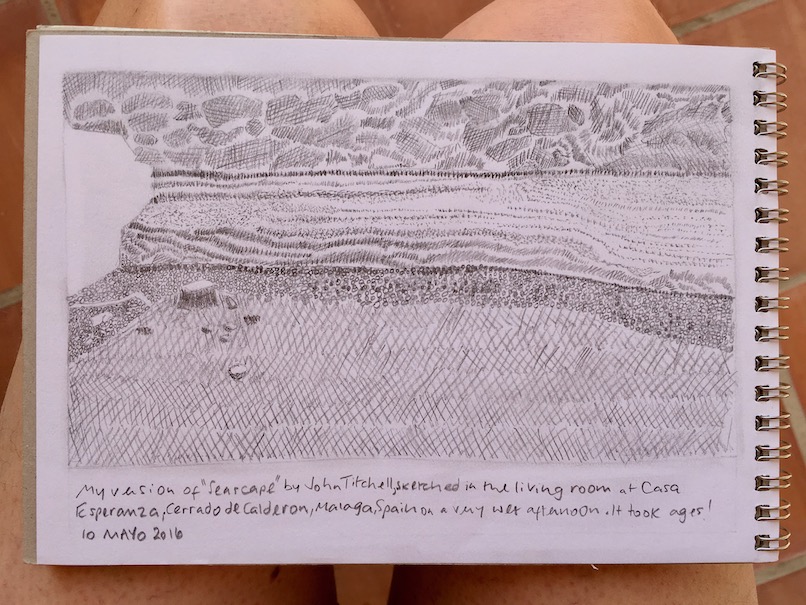 My version of "Seascape" by John Titchell, sketched in the living room at Casa
Esperanza, Cerrado de Calderon, Malaga, Spain on a very wet afternoon. It took ages!
10 MAYO 2016